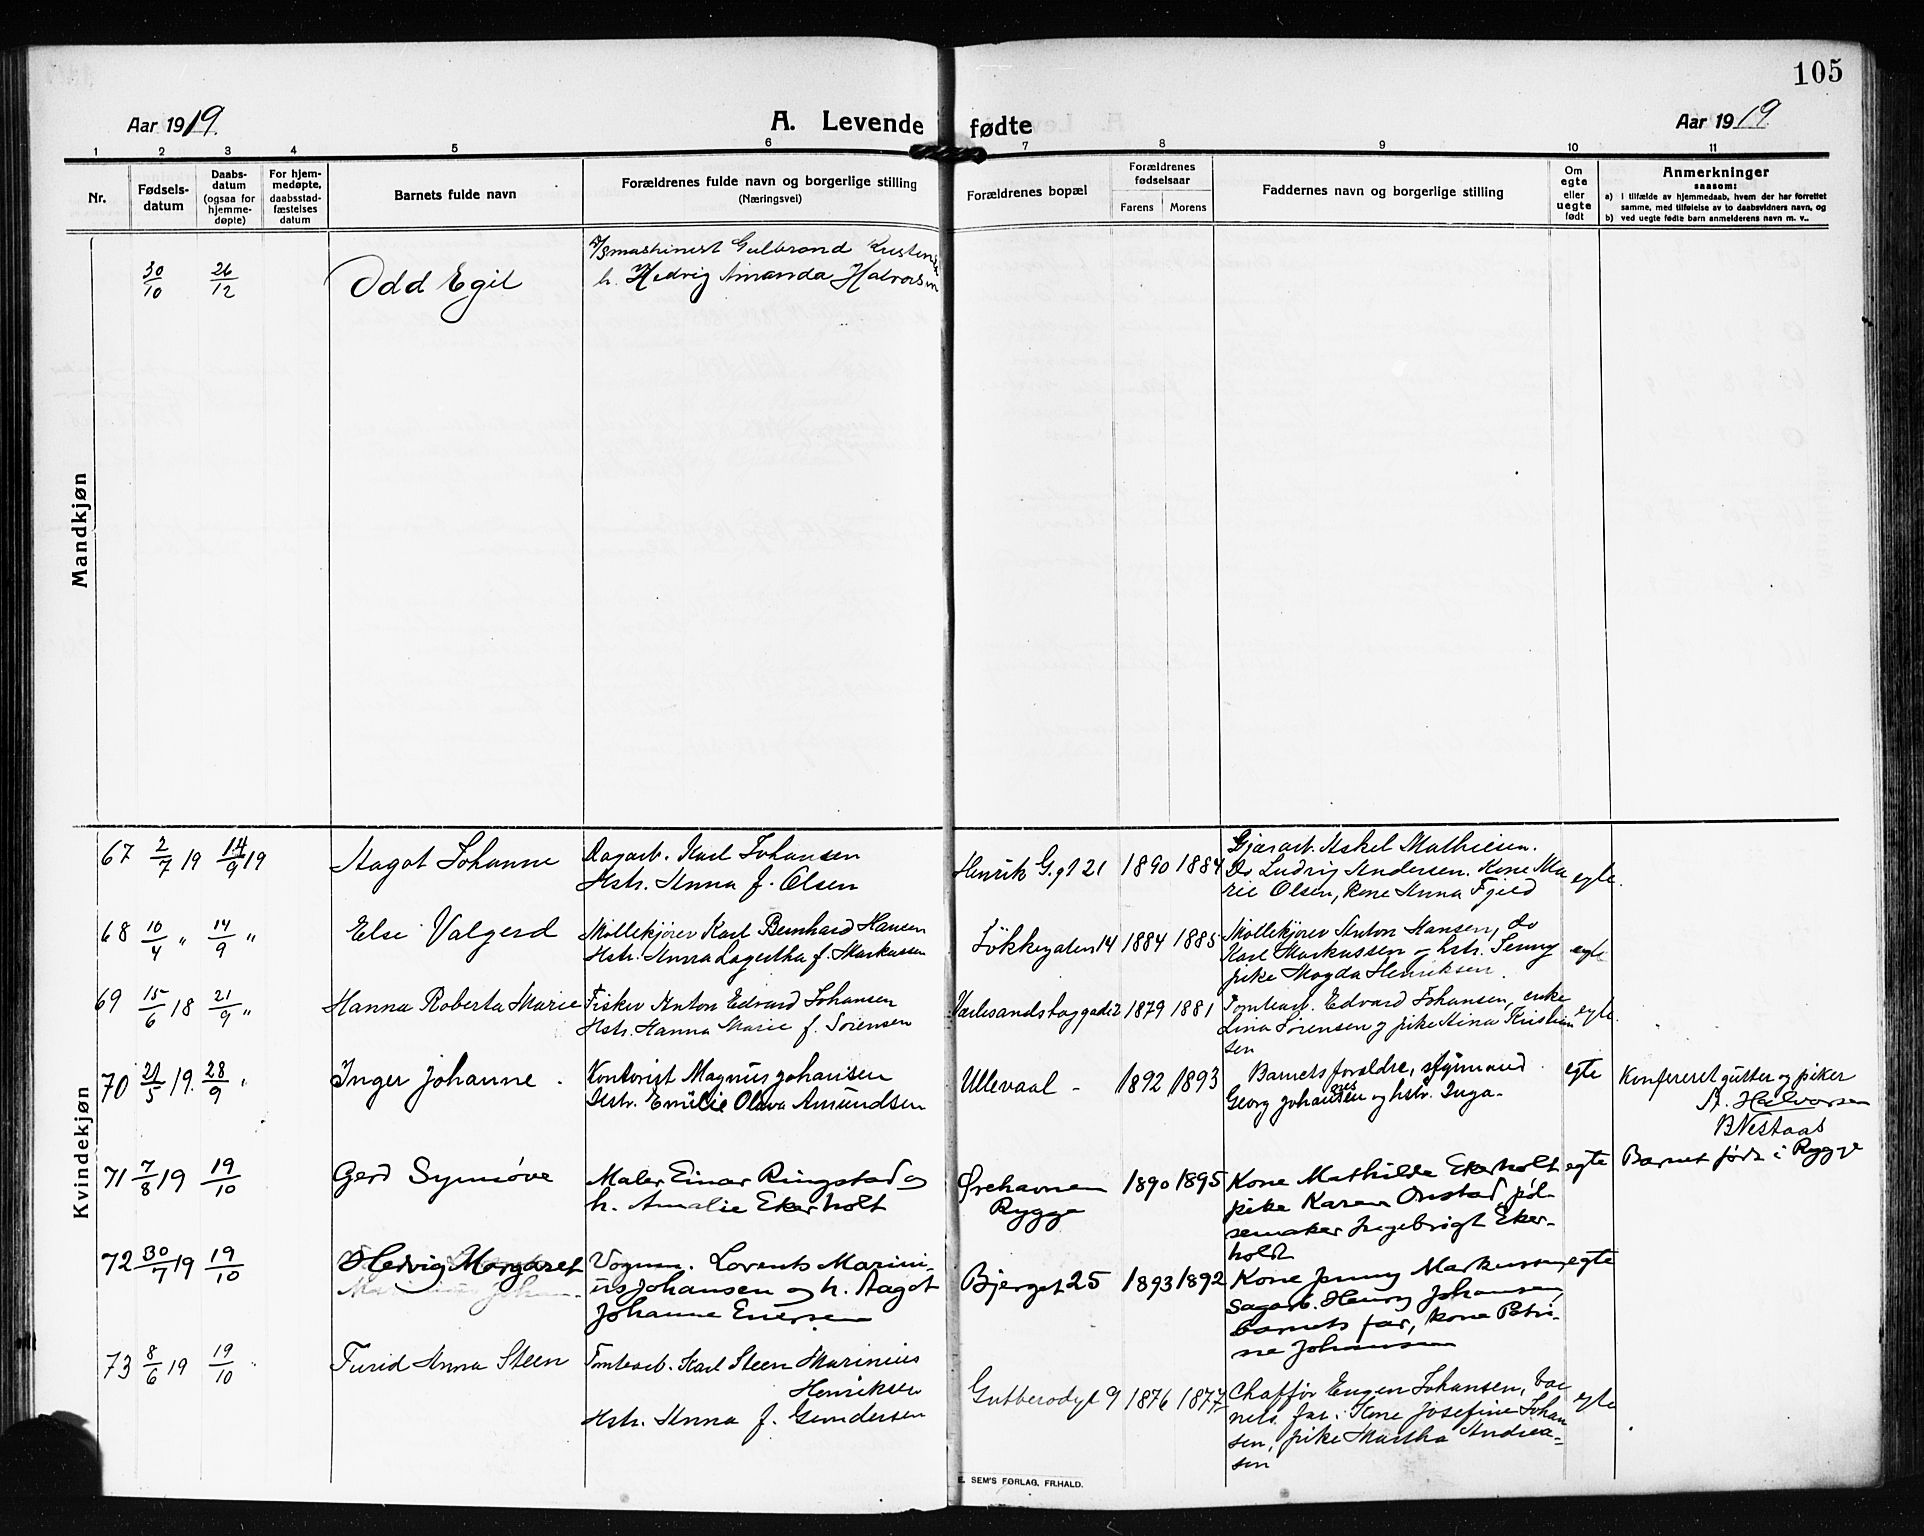 105
Aar 1919.
A. Levende fødte
Aar 1919.
1 2 3 4 5 6 7 8 9 10 11
Nr.
Fødsels-
datum
Daabs-
datum
(ogsaa for
hjemme-
døpte)
For hjem-
medøpte,
daabsstad-
fæstelses
datum
Barnets fulde navn
Forældrenes fulde navn og borgerlige stilling
(Næringsvei)
Forældrenes bopæl
Forældrenes
fødselsaar
Farens Morens
Faddernes navn og borgerlige stilling
Om
egte
eller
uegte
født
Anmerkninger
saasom:
a) i tilfælde av hjemmedaab, hvem der har forrettet
samme, med tilføielse av to daabsvidners navn, og
b) ved uegte fødte barn anmelderens navn m. v..
Mandkjøn
30/10 26/12 Odd Egil
maskinist Gulbrand
h. Hedvig Amanda Halvorsen
Kvindekjøn
67 2/7 19 14/9 19 Aagot Johanne
Dagarb. Karl Johansen
Hstr. Anna f. Olsen
Henrik G.gt 21 1890 1884
Gjørarb. Askel Mathiesen.
Do Ludvig Andersen. Kone Ma
rie Olsen, Kone Anna Fjeld
egte.
68 10/4 " 14/9 " Else Valgerd
Møllekjører Karl Bernhard Hansen
Hstr. Anna Lagertha f. Markussen
Løkkegaten 14 1884 1885
Møllekjører Anton Hansen, do
Karl Markussen og hstr. Jenny
pike Magda Henriksen.
egte
69 15/6 18 21/9 " Hanna Roberta Marie
Fisker Anton Edvard Johansen
Hstr. Hanna Marie f. Sørensen
1879 1881
Tomtearb. Edvard Johansen, enke
Lina Sørensen og pike Stina Kristian
sen
egte.
70 21/5 19. 28/9 " Inger Johanne
Kontorist Magnus Johansen
Hstr. Emilie Olava Amundsen
Ullevaal - 1892 1893
Barnets forældre, styrmand
Georg Johansen og hstr. Inga
egte
Konfereret gutter og piker
A. Halvorsen
B Nestaas
71 7/8 19 19/10 Gerd Synnøve
Maler Einar Ringstad og
h. Amalie Ekerholt
Ørehavnen
Rygge
1890 1895
Kone Mathilde Ekerholt
pike Karen Onstad, pøl
semaker Ingebrigt Eker-
holt
egte
Barnet født i Rygge
72 30/7 19 19/10 Hedvig Margaret
Vognm. Lorents Marini-
us Johansen og h. Aagot
Johanne Enersen
Bjerget 25 1893 1892
Kone Jenny Markussen,
Sagarb. Henry Johansen,
barnets far, kone Petri-
ne Johansen
egte
73 8/6 19 19/10 Turid Anna Steen
Tomtearb. Karl Steen Marinius
Henriksen
Hstr. Anna f. Gundersen
9 1876 1877
Chaffør Eugen Johansen, bar
nets far. Kone Josefine Johan
sen, pike Martha Andrea-
sen
egte
E. SEM'S FORLAG, FR.HALD.